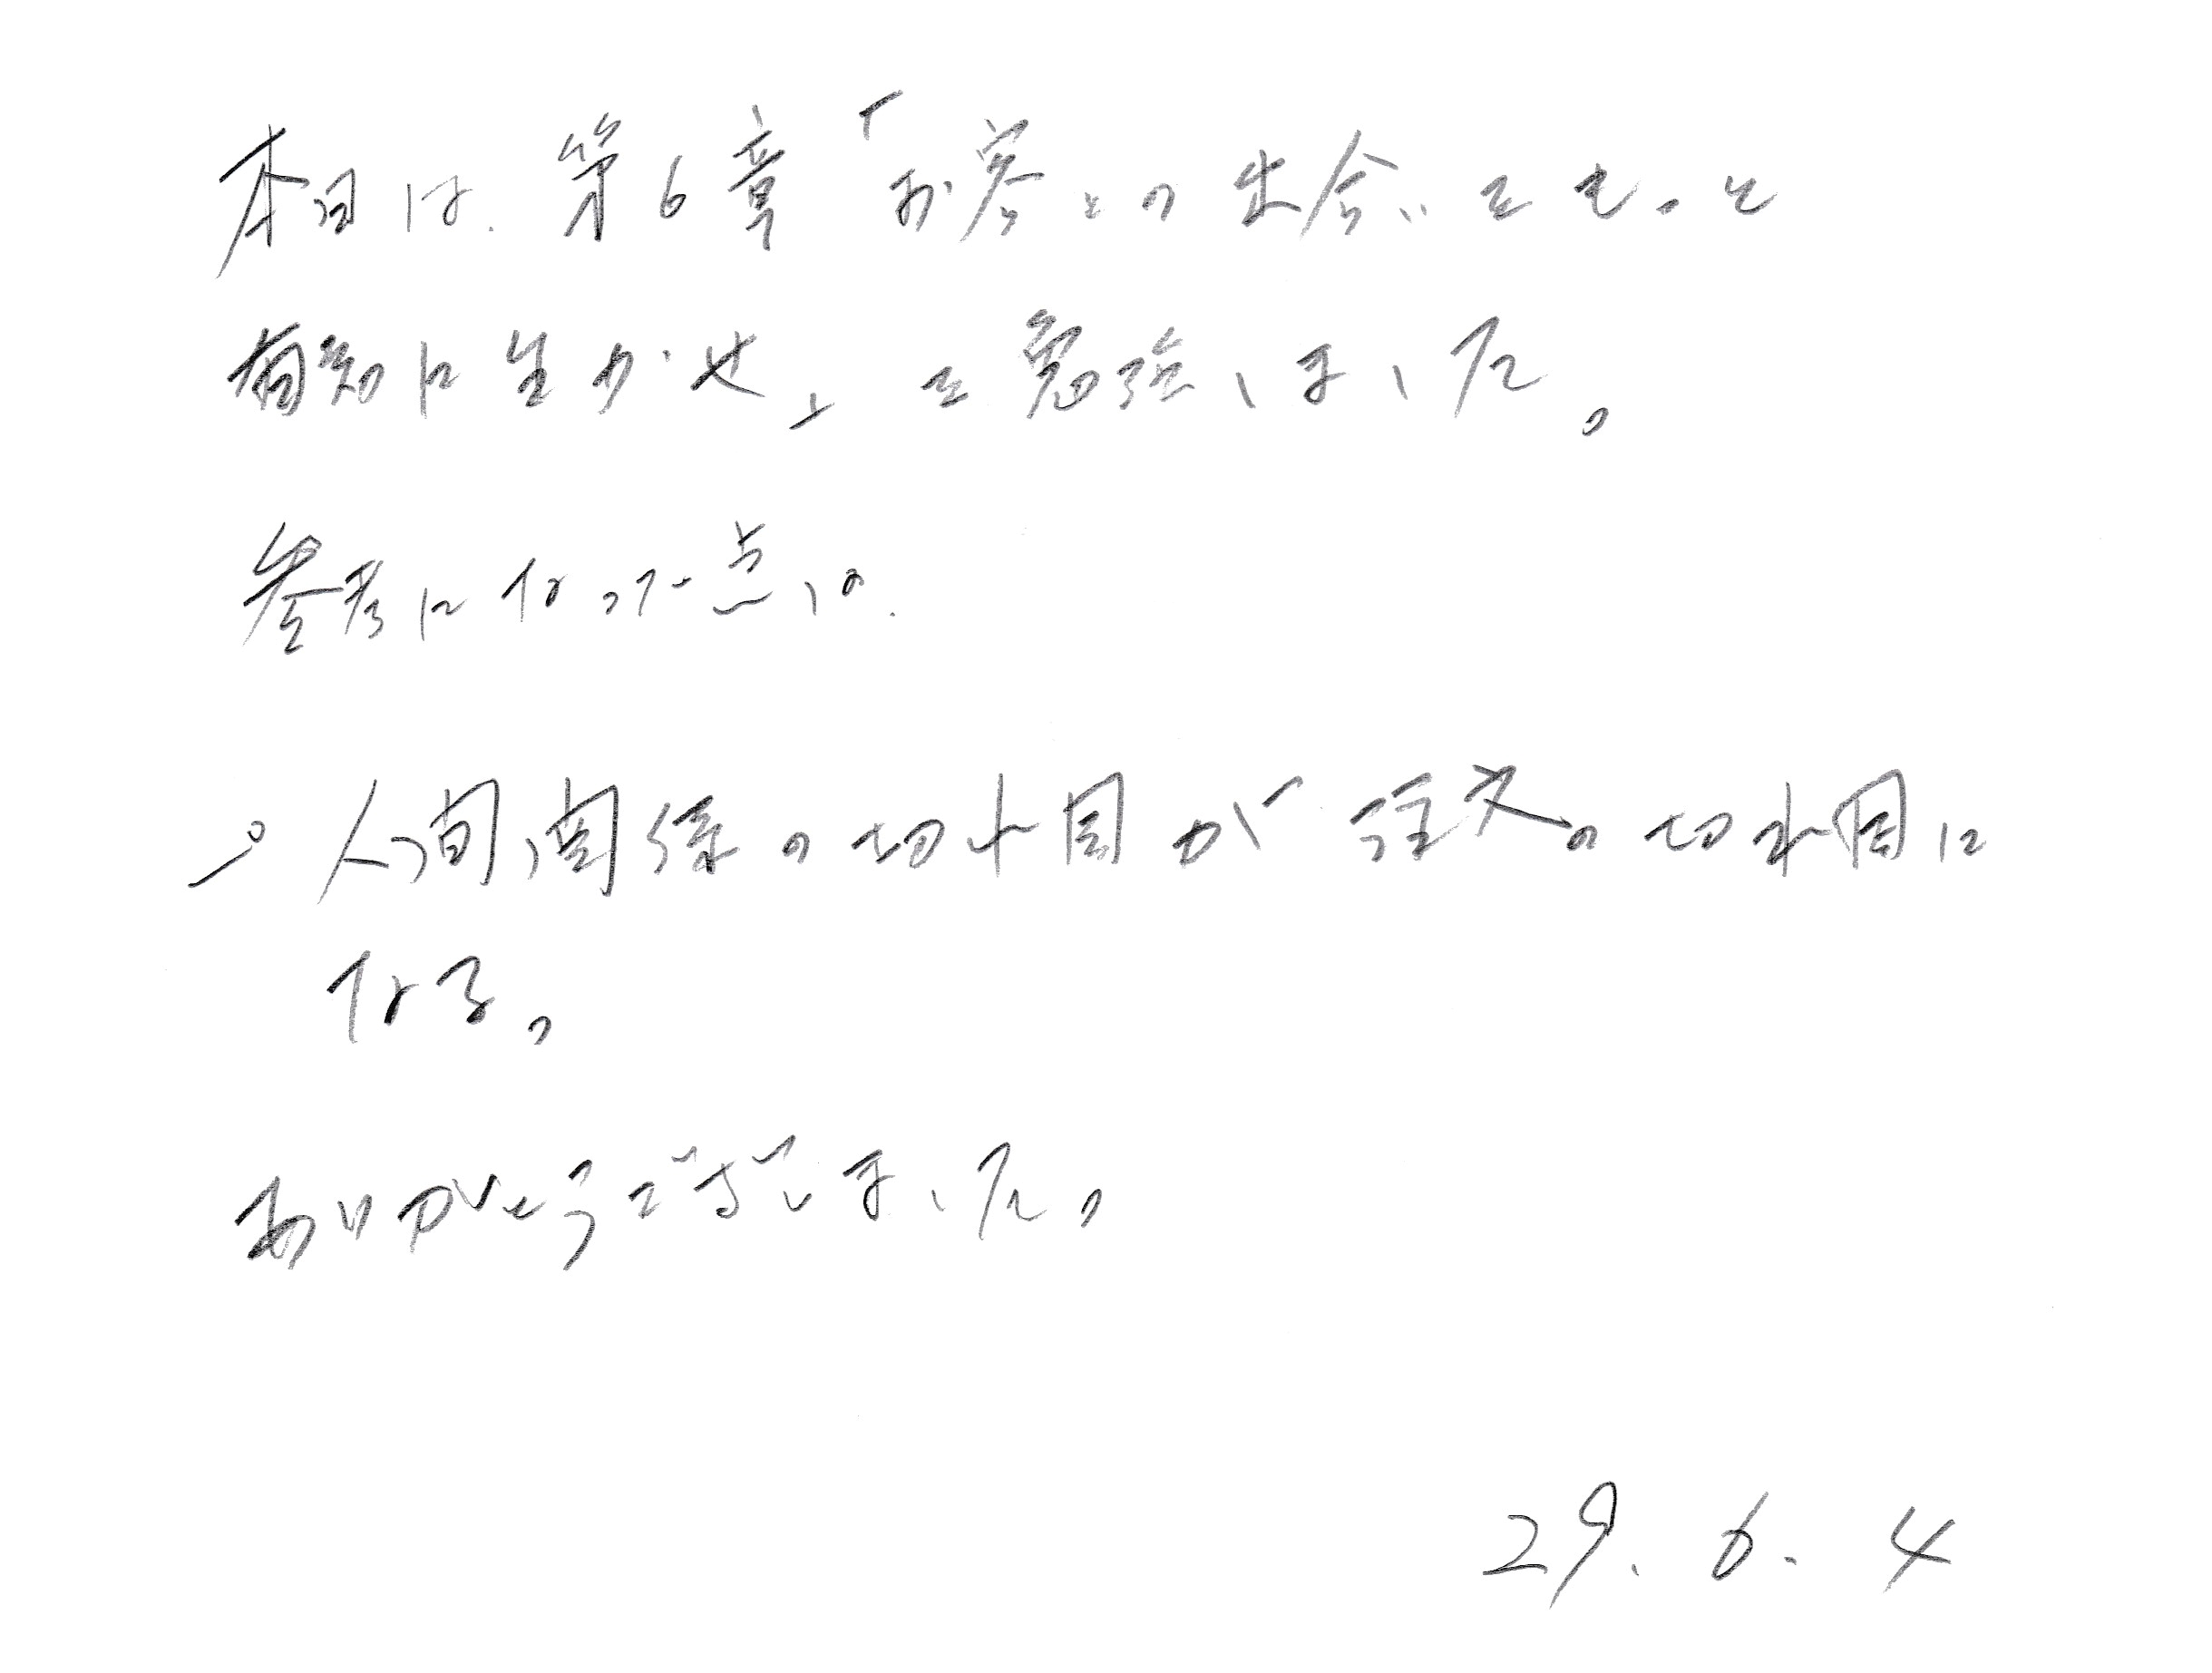 本日は、第6章「お客との出会いをもっと
有効に生かせ」を勉強しました。
参考になった点は、
○人間関係の切れ目が注文の切れ目に
なる。
ありがとうございました。
29.6.4